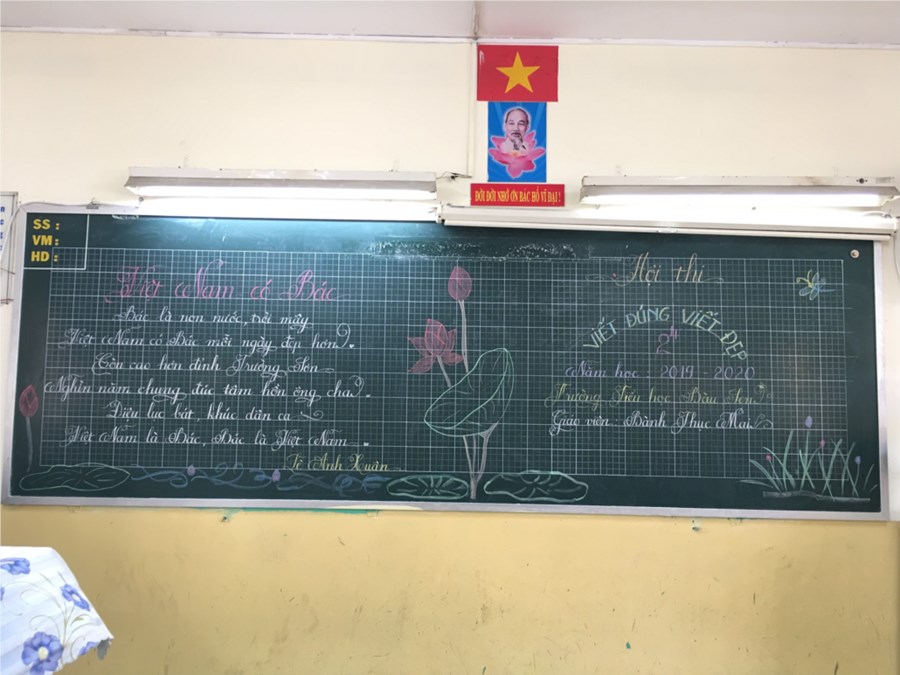 ĐỜI ĐỜI NHỚ ƠN BÁC HỒ VĨ ĐẠI !
SS :
VM :
HD :
Việt Nam có Bác
Bác là non nước, trời mây
Việt Nam có Bác mỗi ngày đẹp hơn.
Còn cao hơn đỉnh Trường Sơn
Nghìn năm chung đúc tâm hồn ông cha.
Điệu lục bát, khúc dân ca
Việt Nam là Bác, Bác là Việt Nam.
Lê Anh Xuân
Hội thi
VIẾT ĐÚNG VIẾT ĐẸP
Năm học : 2019 - 2020
Trường Tiểu học Bàu Sen
Giáo viên : Bành Thục Mai